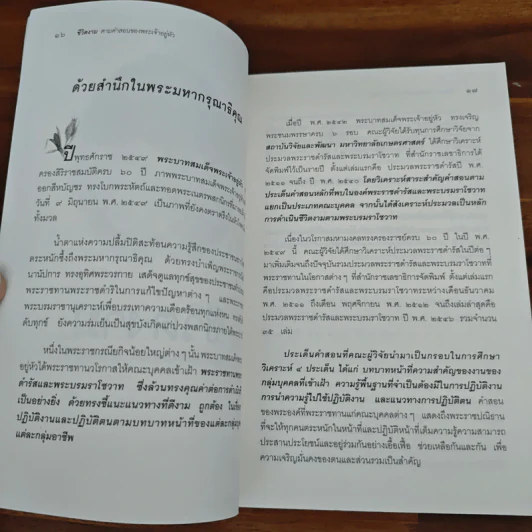 ๑๖ ชีวิตงาม ตามคำสอนของพระเจ้าอยู่หัว
ด้วยสำนึกในพระมหากรุณาธิคุณ
ปีพุทธศักราช ๒๕๔๙ พระบาทสมเด็จพระเจ้าอยู่หัว
ครองสิริราชสมบัติครบ ๖๐ ปี ภาพพระบาทสมเด็จพระเจ้าอยู่
ออกสีหบัญชร ทรงโบกพระหัตถ์และทอดพระเนตรพสกนิกรที่มา
วันที่ ๙ มิถุนายน พ.ศ. ๒๕๔๙ เป็นภาพที่ยังคงตราตรึงใน
ทั้งมวล
น้ำตาแห่งความปลื้มปีติสะท้อนความรู้สึกของประชาชน
ตระหนักซึ้งถึงพระมหากรุณาธิคุณ ด้วยทรงบำเพ็ญพระราช
นานัปการ ทรงอุทิศพระวรกาย เสด็จดูแลทุกข์สุขของประชา
พระราชทานพระราชดำริในการแก้ไขปัญหาต่าง ๆ และพระ
พระบรมราชานุเคราะห์เพื่อบรรเทาความเดือดร้อนทุกแห่งหน
ดับทุกข์ ยังความร่มเย็นเป็นสุขบังเกิดแก่ปวงพสกนิกรภายใต้
หนึ่งในพระราชกรณียกิจน้อยใหญ่ต่าง ๆ นั้น พระบาทสมเด็จ
อยู่หัวได้พระราชทานวโรกาสให้คณะบุคคลเข้าเฝ้าฯ พระราชทาน
ดำรัสและพระบรมราโชวาท ซึ่งล้วนทรงคุณค่าต่อการดำเนิน
เป็นอย่างยิ่ง ด้วยทรงชี้แนะแนวทางที่ดีงาม ถูกต้อง ใน
ปฏิบัติงานและปฏิบัติตนตามบทบาทหน้าที่ของแต่ละบุคคล
แต่ละกลุ่มอาชีพ
๑๗
เมื่อปี พ.ศ. ๒๕๔๒ พระบาทสมเด็จพระเจ้าอยู่หัว ทรงเจริญ
พระชนมพรรษาครบ ๖ รอบ คณะผู้วิจัยได้รับทุนการศึกษาวิจัยจาก
สถาบันวิจัยและพัฒนา มหาวิทยาลัยเกษตรศาสตร์ ได้ศึกษาวิเคราะห์
ประมวลพระราชดำรัสและพระบรมราโชวาท ที่สำนักราชเลขาธิการได้
จัดพิมพ์ไว้เป็นรายปี ตั้งแต่เล่มแรกคือประมวลพระราชดำรัสปี พ.ศ.
จนถึง พ.ศ. ๒๕๔๐ โดยวิเคราะห์สาระสำคัญคำสอนตาม
ประเด็นคำสอนหลักที่พบในองค์พระราชดำรัสและพระบรมราโชวาท
แยกเป็นประเภทคณะบุคคล จากนั้นได้สังเคราะห์ประมวลเป็นหลัก
การดำเนินชีวิตงามตามพระบรมราโชวาท
เนื่องในวโรกาสมหามงคลทรงครองราชย์ครบ ๖๐ ปี ในปี พ.ศ.
๒๕๔๙ นี้ คณะผู้วิจัยได้ศึกษาวิเคราะห์ประมวลพระราชดำรัสในปีต่อ ๆ
มาเพิ่มเติมจนถึงปัจจุบันรวมประมวลพระราชดำรัสและพระบรมราโชวาทที่
พระราชทานในโอกาสต่าง ๆ ที่สำนักราชเลขาธิการจัดพิมพ์ ตั้งแต่เล่มแรก
คือประมวลพระราชดำรัสและพระบรมราโชวาทระหว่างเดือนธันวาคม
พ.ศ. ๒๕๑๑ ถึงเดือน พฤศจิกายน พ.ศ. ๒๕๑๒ จนถึงเล่มล่าสุดคือ
ประมวลพระราชดำรัสและพระบรมราโชวาท ปี พ.ศ. ๒๕๔๖ รวมจำนวน
๓๕ เล่ม
ประเด็นคำสอนที่คณะผู้วิจัยนำมาเป็นกรอบในการศึกษา
วิเคราะห์ ๔ ประเด็น ได้แก่ บทบาทหน้าที่ความสำคัญของงานของ
กลุ่มบุคคลที่เข้าเฝ้าฯ ความรู้พื้นฐานที่จำเป็นต้องมีในการปฏิบัติงาน
การนำความรู้ไปใช้ปฏิบัติงาน และแนวทางการปฏิบัติตน คำสอน
ของพระองค์ที่พระราชทานแก่คณะบุคคลต่าง ๆ แสดงถึงพระราชปณิธาน
ที่จะให้ทุกคนตระหนักในหน้าที่และปฏิบัติหน้าที่เต็มความรู้ความสามารถ
ประสานประโยชน์และอยู่ร่วมกันอย่างเอื้อเฟื้อ ช่วยเหลือกันและกัน เพื่อ
ความเจริญมั่นคงของตนและส่วนรวมเป็นสำคัญ